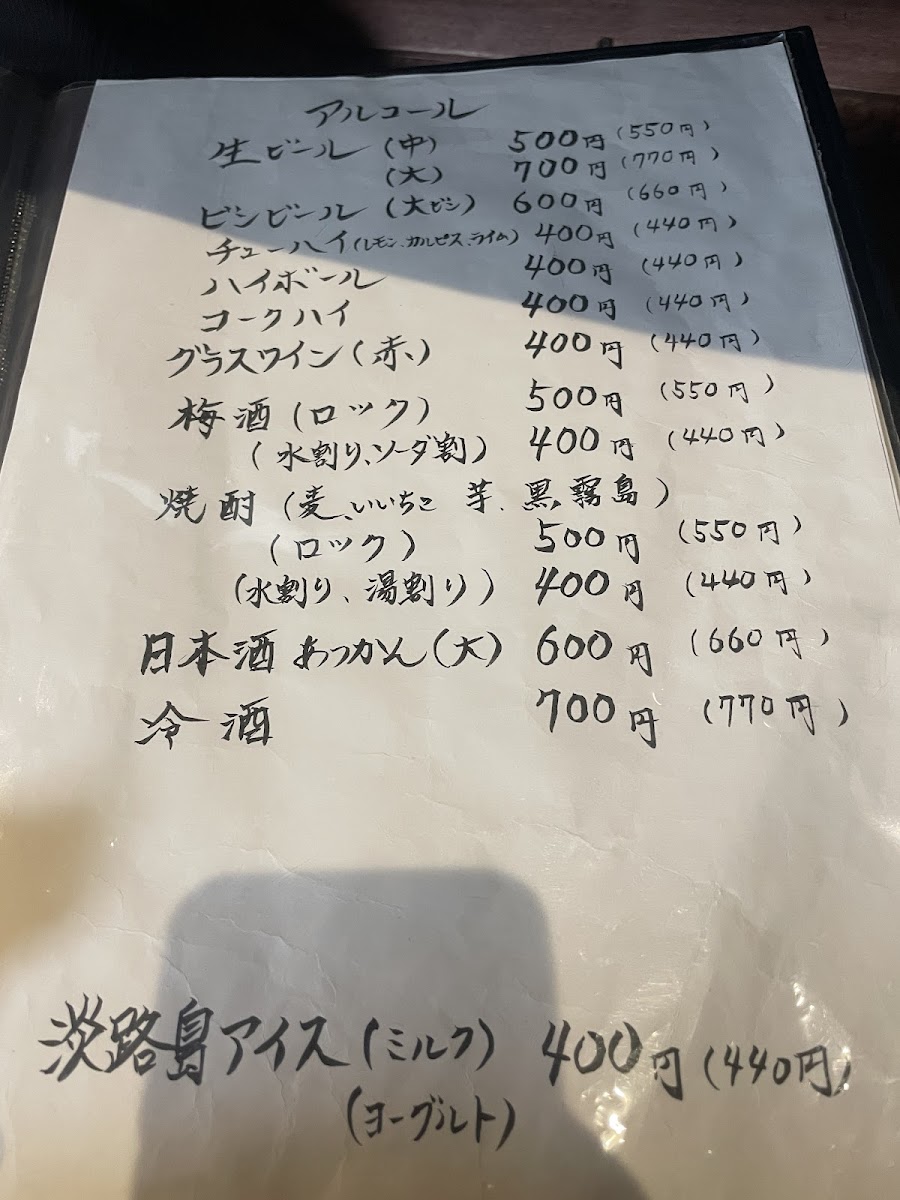 アルコール
生ビール（中） 500円（550円）
（大） 700円（770円）
ビンビール（大ビン） 600円（660円）
チューハイ（レモン、カルピス、ライム） 400円（440円）
ハイボール 400円（440円）
コークハイ 400円（440円）
グラスワイン（赤、） 400円（440円）
梅酒（ロック） 500円（550円）
（水割り、ソーダ割） 400円（440円）
焼酎（麦、いいちこ 芋、黒霧島）
（ロック） 500円（550円）
（水割り、湯割り） 400円（440円）
日本酒 あつかん（大） 600円（660円）
冷酒 700円（770円）
淡路島アイス（ミルク） 400円（440円）
（ヨーグルト）